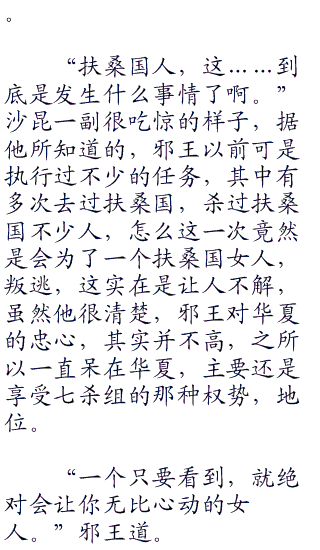 。
“扶桑国人，这……到
底是发生什么事情了啊。”
沙昆一副很吃惊的样子，据
他所知道的，邪王以前可是
执行过不少的任务，其中有
多次去过扶桑国，杀过扶桑
国不少人，怎么这一次竟然
是会为了一个扶桑国女人，
叛逃，这实在是让人不解，
虽然他很清楚，邪王对华夏
的忠心，其实并不高，之所
以一直呆在华夏，主要还是
享受七杀组的那种权势，地
位。
“一个只要看到，就绝
对会让你无比心动的女
人。”邪王道。